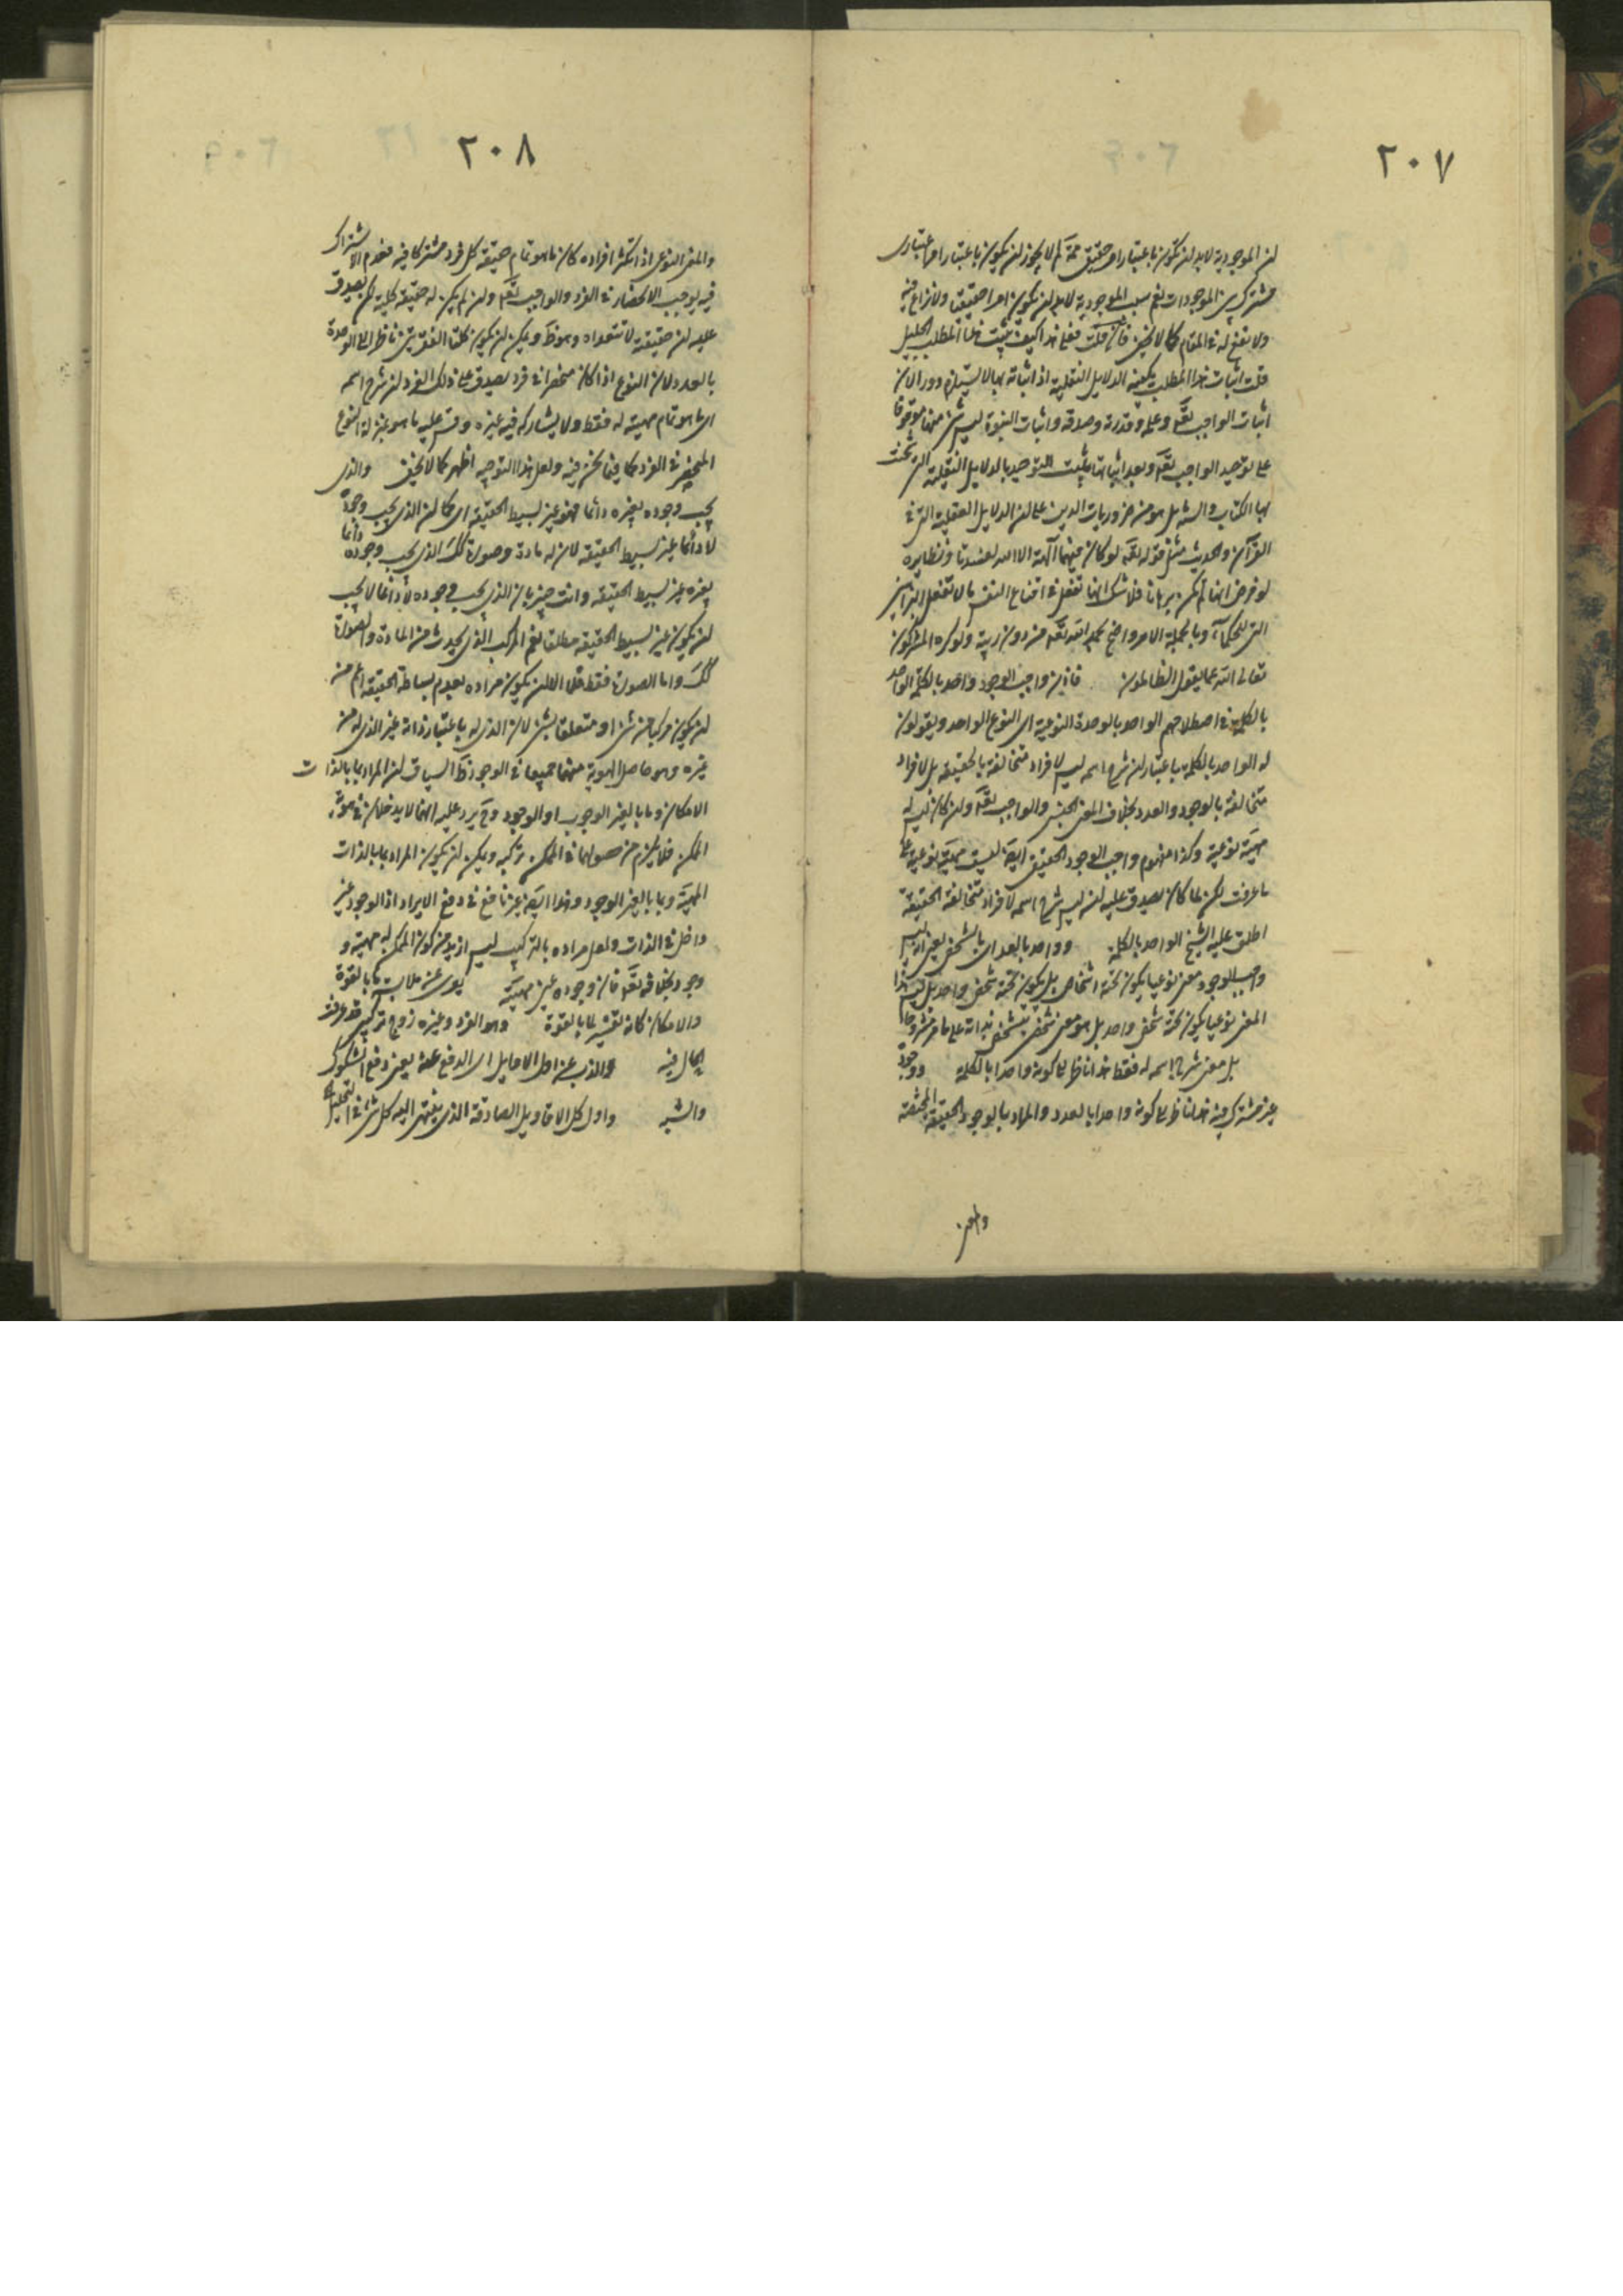 ٢٠٧
ان الموجودية لابد ان تكون باعتبار امر حقيقى ثمة لم لا يجوز ان يكون باعتبار امر اعتبارى
مشترك بين الموجودات نعم سبب الموجودية لابد ان يكون امرا حقيقيا ولا نزاع فيه
ولا نفع له فى المقام كما لا يخفى فان قلت فعلى هذا كيف يثبت هذا المطلب الجليل
قلت اثبات هذا المطلب يكفيه الدلايل النقلية اذ اثباته بها لا يستلزم دورا لان
اثبات الواجب تعالى وعلمه وقدرته وصدقه واثبات النبوة ليس شئ منها موقوفا
على توحيد الواجب تعالى وبعد اثباتها يثبت التوحيد بالدلايل النقلية التى شحنت
بها الكتاب والسنة بل هو من ضروريات الدين على ان الدلايل العقلية التى فى
القرآن والحديث مثل قوله تعالى لو كان فيهما آلهة الا الله لفسدتا ونظايره
لو فرض انها لم يكن برهانا فلا شك انها تفعل فى اقناع النفس ما لا تفعل البراهين
التى للحكماء وبالجملة الامر واضح بحمد الله تعالى من دون ريبة ولو كره المشركون
تعالى الله عما يقول الظالمون فاذن واجب الوجود واحد بالكلمة الواحد
بالكلمة فى اصطلاحهم الواحد بالوحدة النوعية اى النوع الواحد ويقولون
له الواحد بالكلمة باعتبار ان شرح اسمه ليس لافراد متخالفة بالحقيقة بل لافراد
متخالفة بالوجود والعدد بخلاف المعنى الجنسى والواجب تعالى وان كان ليس له
مهية نوعية وكذا مفهوم واجب الوجود الحقيقى ايضا ليست مهية نوعية على
ما عرفت لكن لما كان يصدق عليه ان ليس شرح اسمه لافراد متخالفة الحقيقة
اطلق عليه الشيخ الواحد بالكلمة وواحد بالعدد اى بالشخص يعنى انه ليس
واجب الوجود معنى نوعيا يكون تحته اشخاص بل يكون تحته شخص واحد بل ليس هذا
المعنى نوعيا يكون تحته شخص واحد بل هو معنى شخص يتشخص بذاته على ما مر مشروحا
بل معنى شرح اسمه له فقط هذا ناظر الى كونه واحدا بالكلمة ووجود
غير مشترك فيه هذا ناظر الى كونه واحدا بالعدد والمراد بالوجود الحقيقة المختصة
والمعنى
٢٠٨
والمعنى النوعى اذا تكثر افراده كان ما هو تمام حقيقة كل فرد مشتركا فيه فعدم الاشتراك
فيه يوجب الانحصار فى الفرد والواجب تعالى وان لم يكن له حقيقة كلية لكن يصدق
عليه ان حقيقته لا تتعداه وهو ظ ويمكن ان يكون كلتا الفقرتين ناظرا الى الوحدة
بالعدد لان النوع اذا كان منحصرا فى فرد يصدق على ذلك الفرد ان شرح اسمه
اى ما هو تمام مهيته له فقط ولا يشاركه فيه غيره وقس عليه ما هو بمنزلة النوع
المنحصر فى الفرد كما فيما نحن فيه ولعل هذا التوجيه اظهر كما لا يخفى والذى
يجب وجوده بغيره دائما فهو غير بسيط الحقيقة اى كما ان الذى يجب وجوده
لا دائما غير بسيط الحقيقة لان له مادة وصورة كذلك الذى يجب وجوده دائما
بغيره غير بسيط الحقيقة وانت خبير بان الذى يجب وجوده لا دائما لا يجب
ان يكون غير بسيط الحقيقة مطلقا نعم المركب الذى يحدث من المادة والصورة
كذلك واما الصورة فقط فلا الا ان يكون مراده بعدم بساطة الحقيقة اعم من
ان يكون مركبا من شئ او متعلقا بشئ لان الذى له باعتبار ذاته غير الذى له من
غيره وهو حاصل الهوية منهما جميعا فى الوجود ظ السياق ان المراد بما بالذات
الامكان وما بالغير الوجوب او الوجود وح يرد عليه انهما لا يدخلان فى هوية
الممكن فلا يلزم من حصولهما فى الممكن تركيبه ويمكن ان يكون المراد بما بالذات
المهية وبما بالغير الوجود وهذا ايضا غير نافع فى دفع الايراد اذ الوجود غير
داخل فى الذات ولعل مراده بالتركيب ليس ازيد من كون الممكن له مهية و
وجود بخلافه تعالى فان وجوده عين مهيته يعرى عن ملابسة ما بالقوة
والامكان كانه تفسير لما بالقوة وهو الفرد وغيره زوج تركيبى قد عرفت
الحال فيه والذب عن اول الاقاويل اى الدفع عنه يعنى دفع الشكوك
والشبه واول كل الاقاويل الصادقة الذى ينتهى اليه كل شئ فى التحليل